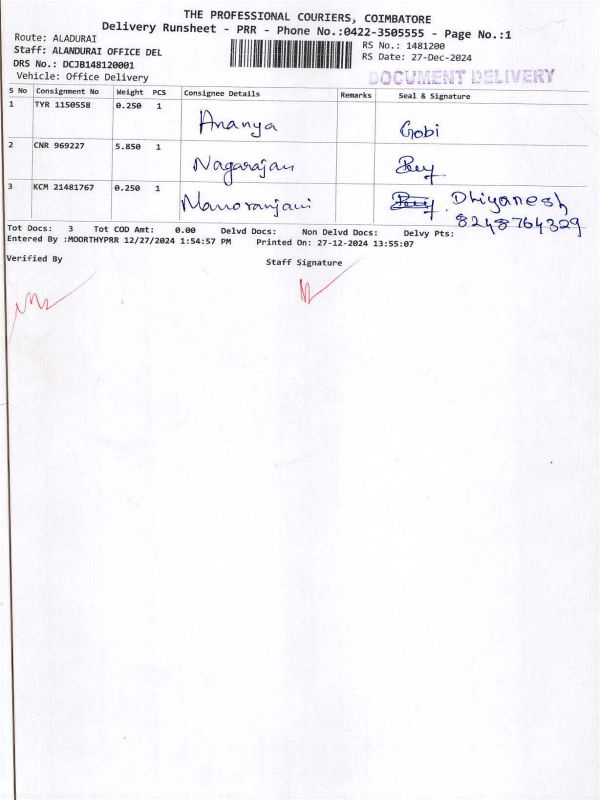 THE PROFESSIONAL COURIERS, COIMBATORE
Delivery Runsheet - PRR - Phone No.:0422-3505555 - Page No.:1
Route: ALADURAI
RS No.: 1481200
Staff: ALANDURAI OFFICE DEL
RS Date: 27-Dec-2024
DRS No.: DCJB148120001
DOCUMENT DELIVERY
Vehicle: Office Delivery
S No Consignment No Weight PCS Consignee Details Remarks Seal & Signature
1 TYR 1150558 0.250 1 Ananya Gobi
2 CNR 969227 5.850 1 Nagarajan
3 KCM 21481767 0.250 1 Manoranjani Dhiyanesh
8248764329
Tot Docs: 3 Tot COD Amt: 0.00 Delvd Docs: Non Delvd Docs: Delvy Pts:
Entered By :MOORTHYPRR 12/27/2024 1:54:57 PM Printed On: 27-12-2024 13:55:07
Verified By Staff Signature